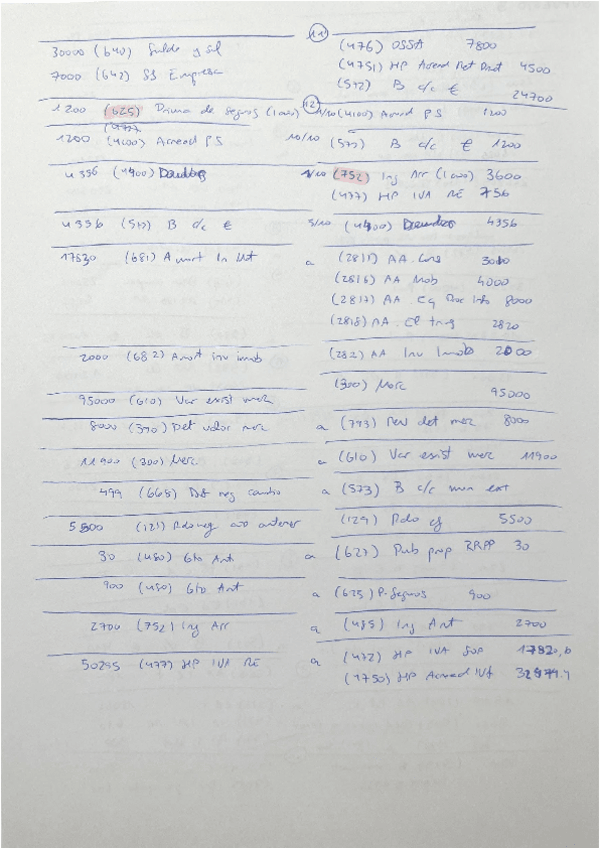 11
30000 (640) Sueldo y sal (476) OSSA 7800
7000 (642) SS Empresa (4751) HP Acreed Ret Pract 4500
(572) B c/c € 24700
1200 (625) Prima de Seguros (1 año) 12 1/10 (4100) Acreed PS 1200
1200 (4100) Acreed PS 10/10 (572) B c/c € 1200
4356 (4400) Deudores 1/10 (752) Ing Arr (1 año) 3600
(477) HP IVA RE 756
4356 (572) B c/c € 5/10 (4400) Deudores 4356
17830 (681) Amort In Mat a (2811) AA. Cons
(2816) AA Mob 4000
(2817) AA. Eq Proc Info 8000
(2818) AA. El trans 2820
2000 (682) Amort inv inmob (282) AA Inv Inmob 2000
(300) Merc
95000 (610) Var exist merc 95000
8000 (390) Det valor merc a (793) Rev det merc 8000
11900 (300) Merc a (610) Var exist merc 11900
499 (668) Dif neg cambio a (573) B c/c mon ext
5500 (121) Rdo neg año anterior (129) Rdo ej 5500
30 (480) Gto Ant a (627) Pub prop RRPP 30
900 (480) Gto Ant a (625) P. Seguros 900
2700 (752) Ing Arr a (485) Ing Ant 2700
50255 (477) HP IVA RE a (472) HP IVA SOP
(4750) HP Acreed IVA